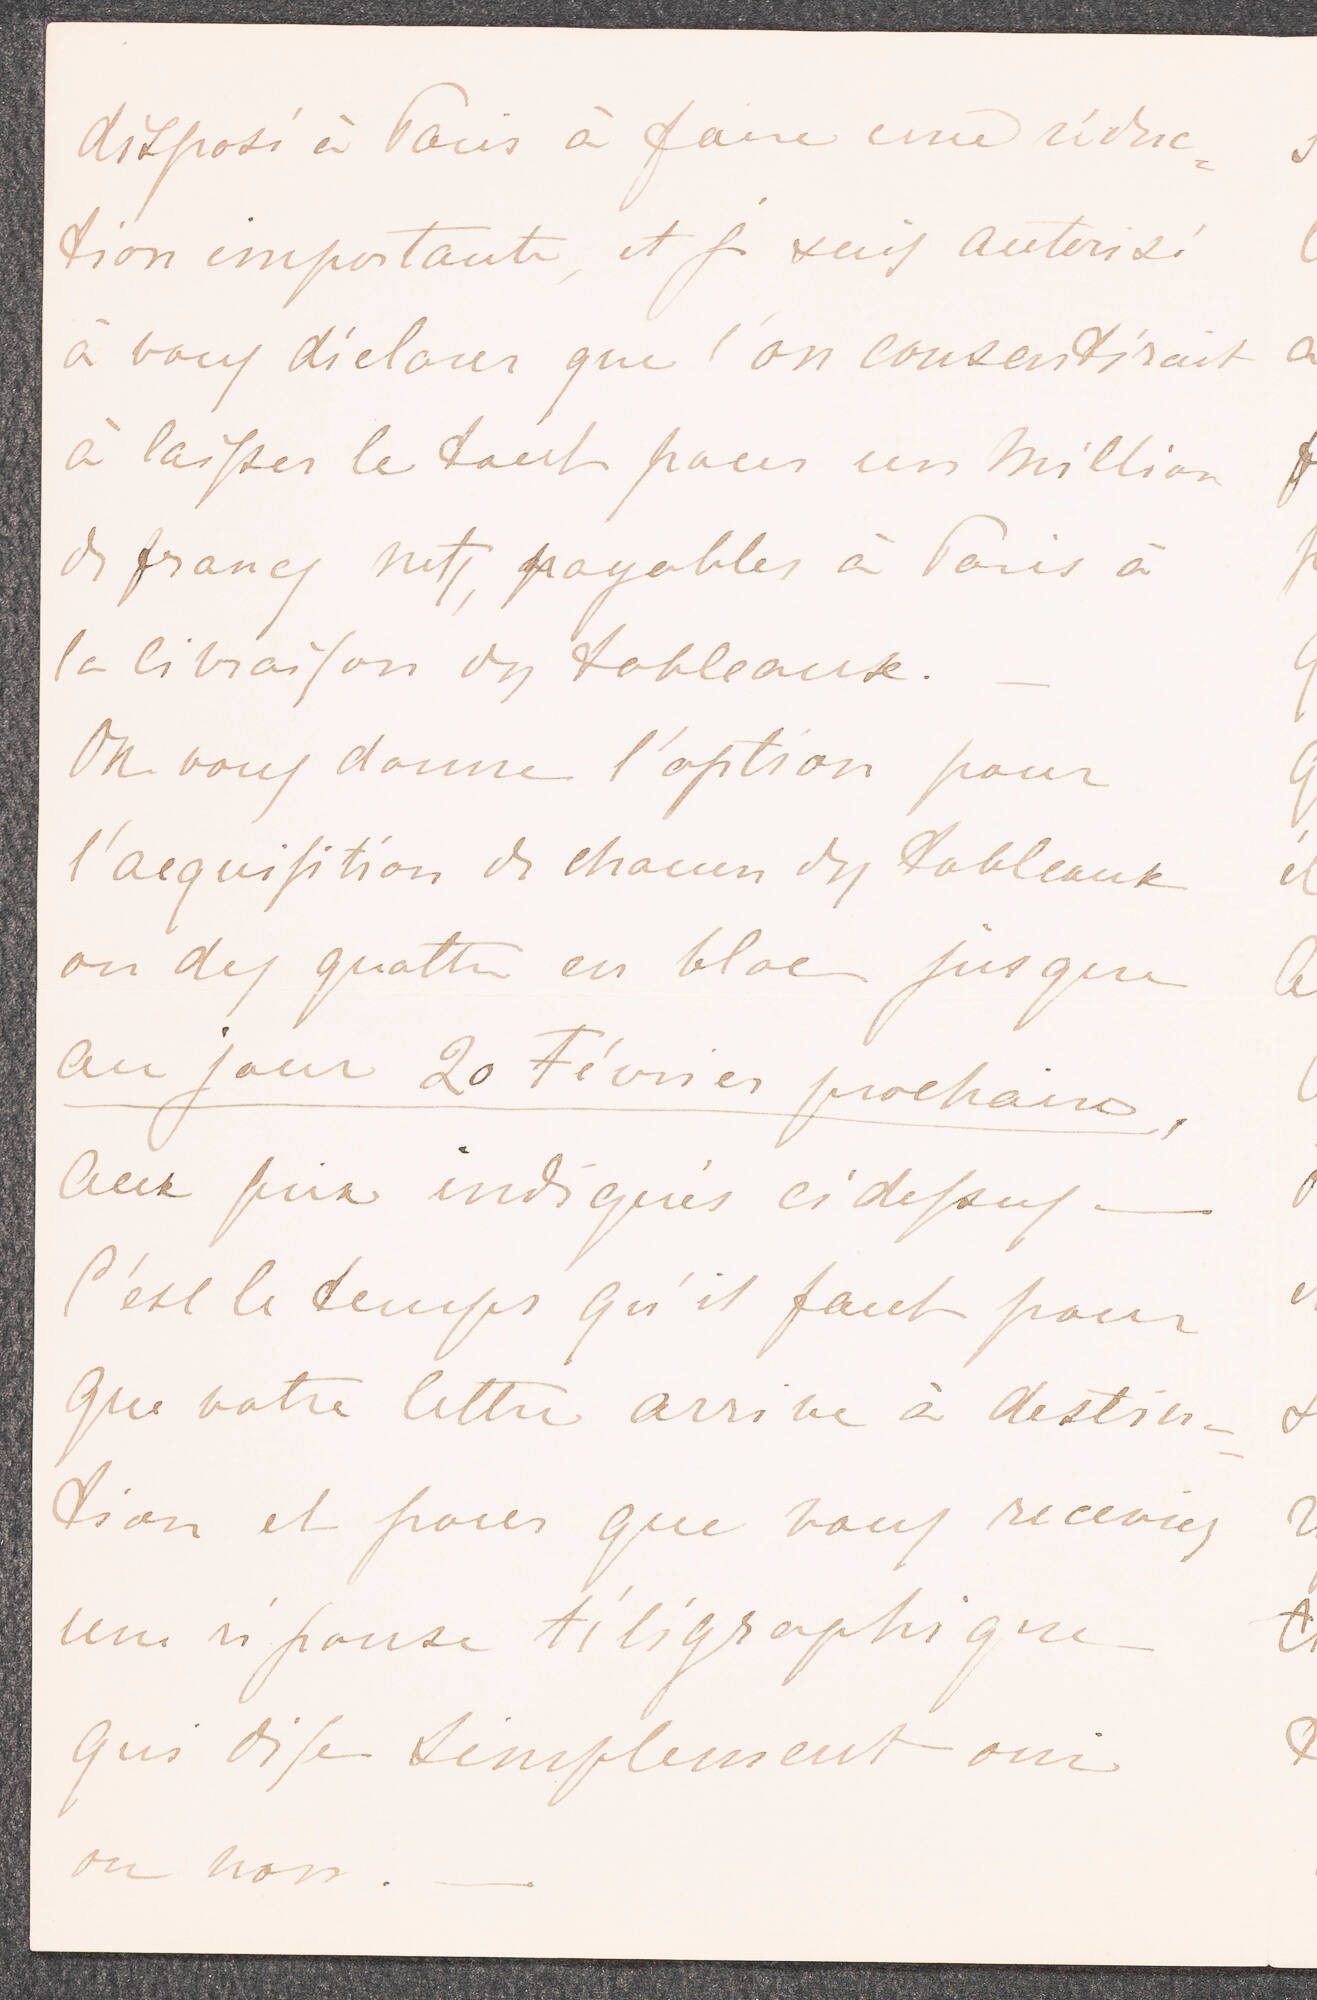 disposé à Paris à faire une réduc=
tion importante, et je suis autorisé
à vous déclarer que l'on consentirait
à laisser le tout pour un Million
de francs nets, payables à Paris à
la livraison des tableaux. —
On vous donne l'option pour
l'acquisition de chacun des tableaux
ou des quattre en bloc jusque
au jour 20 Février prochain,
aux prix indiqués ci dessus —
C'est le temps qu'il faut pour
que votre lettre arrive à destin=
tion et pour que vous receviez
une réponse télégraphique
qui dise simplement oui
ou non. —